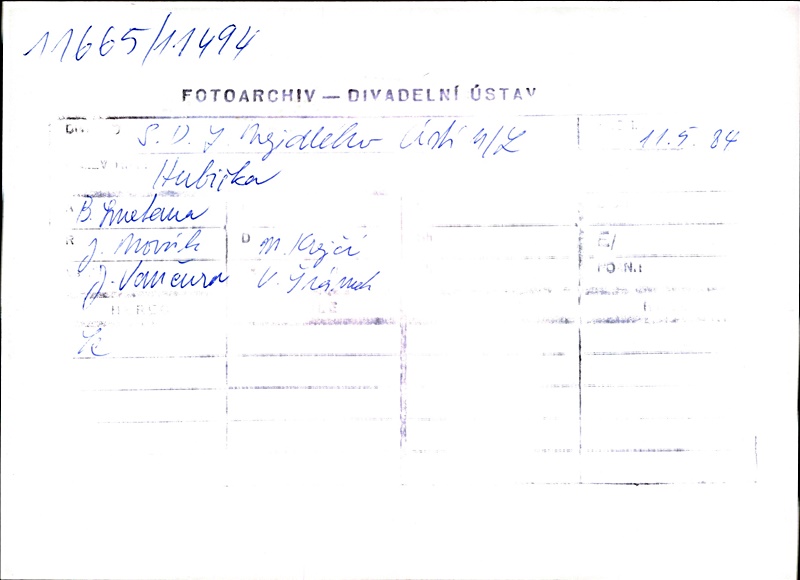 11665/11494
FOTOARCHIV — DIVADELNÍ ÚSTAV
S. D. Z. Nejedlého Ústí n/L 11. 5. 84
Hubička
B. Smetana
R J. Novák D M. Krejčí
J. Vančura V. Šrámek